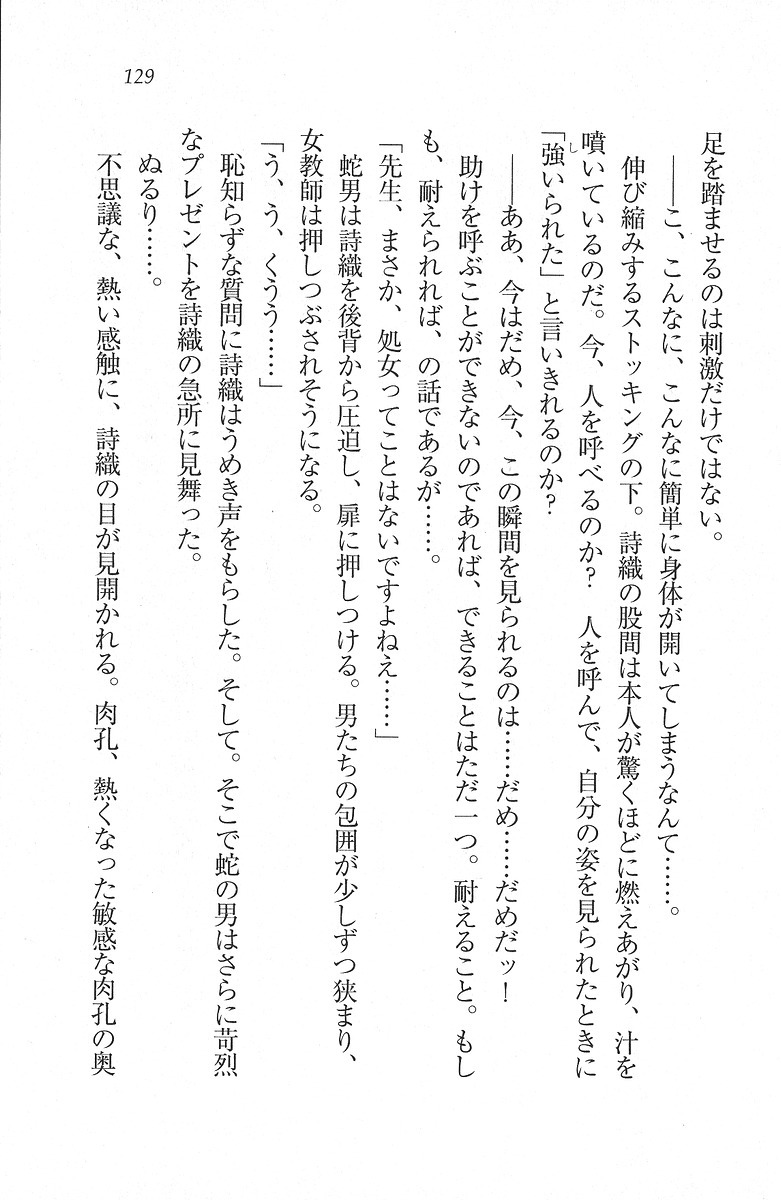 129
足を踏ませるのは刺激だけではない。
――こ、こんなに、こんなに簡単に身体が開いてしまうなんて……。
伸び縮みするストッキングの下。詩織の股間は本人が驚くほどに燃えあがり、汁を
噴いているのだ。今、人を呼べるのか？　人を呼んで、自分の姿を見られたときに
「強いられた」と言いきれるのか？
――ああ、今はだめ、今、この瞬間を見られるのは……だめ……だめだッ！
助けを呼ぶことができないのであれば、できることはただ一つ。耐えること。もし
も、耐えられれば、の話であるが……。
「先生、まさか、処女ってことはないですよねえ……」
蛇男は詩織を後背から圧迫し、扉に押しつける。男たちの包囲が少しずつ狭まり、
女教師は押しつぶされそうになる。
「う、う、くうう……」
恥知らずな質問に詩織はうめき声をもらした。そして。そこで蛇の男はさらに苛烈
なプレゼントを詩織の急所に見舞った。
ぬるり……。
不思議な、熱い感触に、詩織の目が見開かれる。肉孔、熱くなった敏感な肉孔の奥